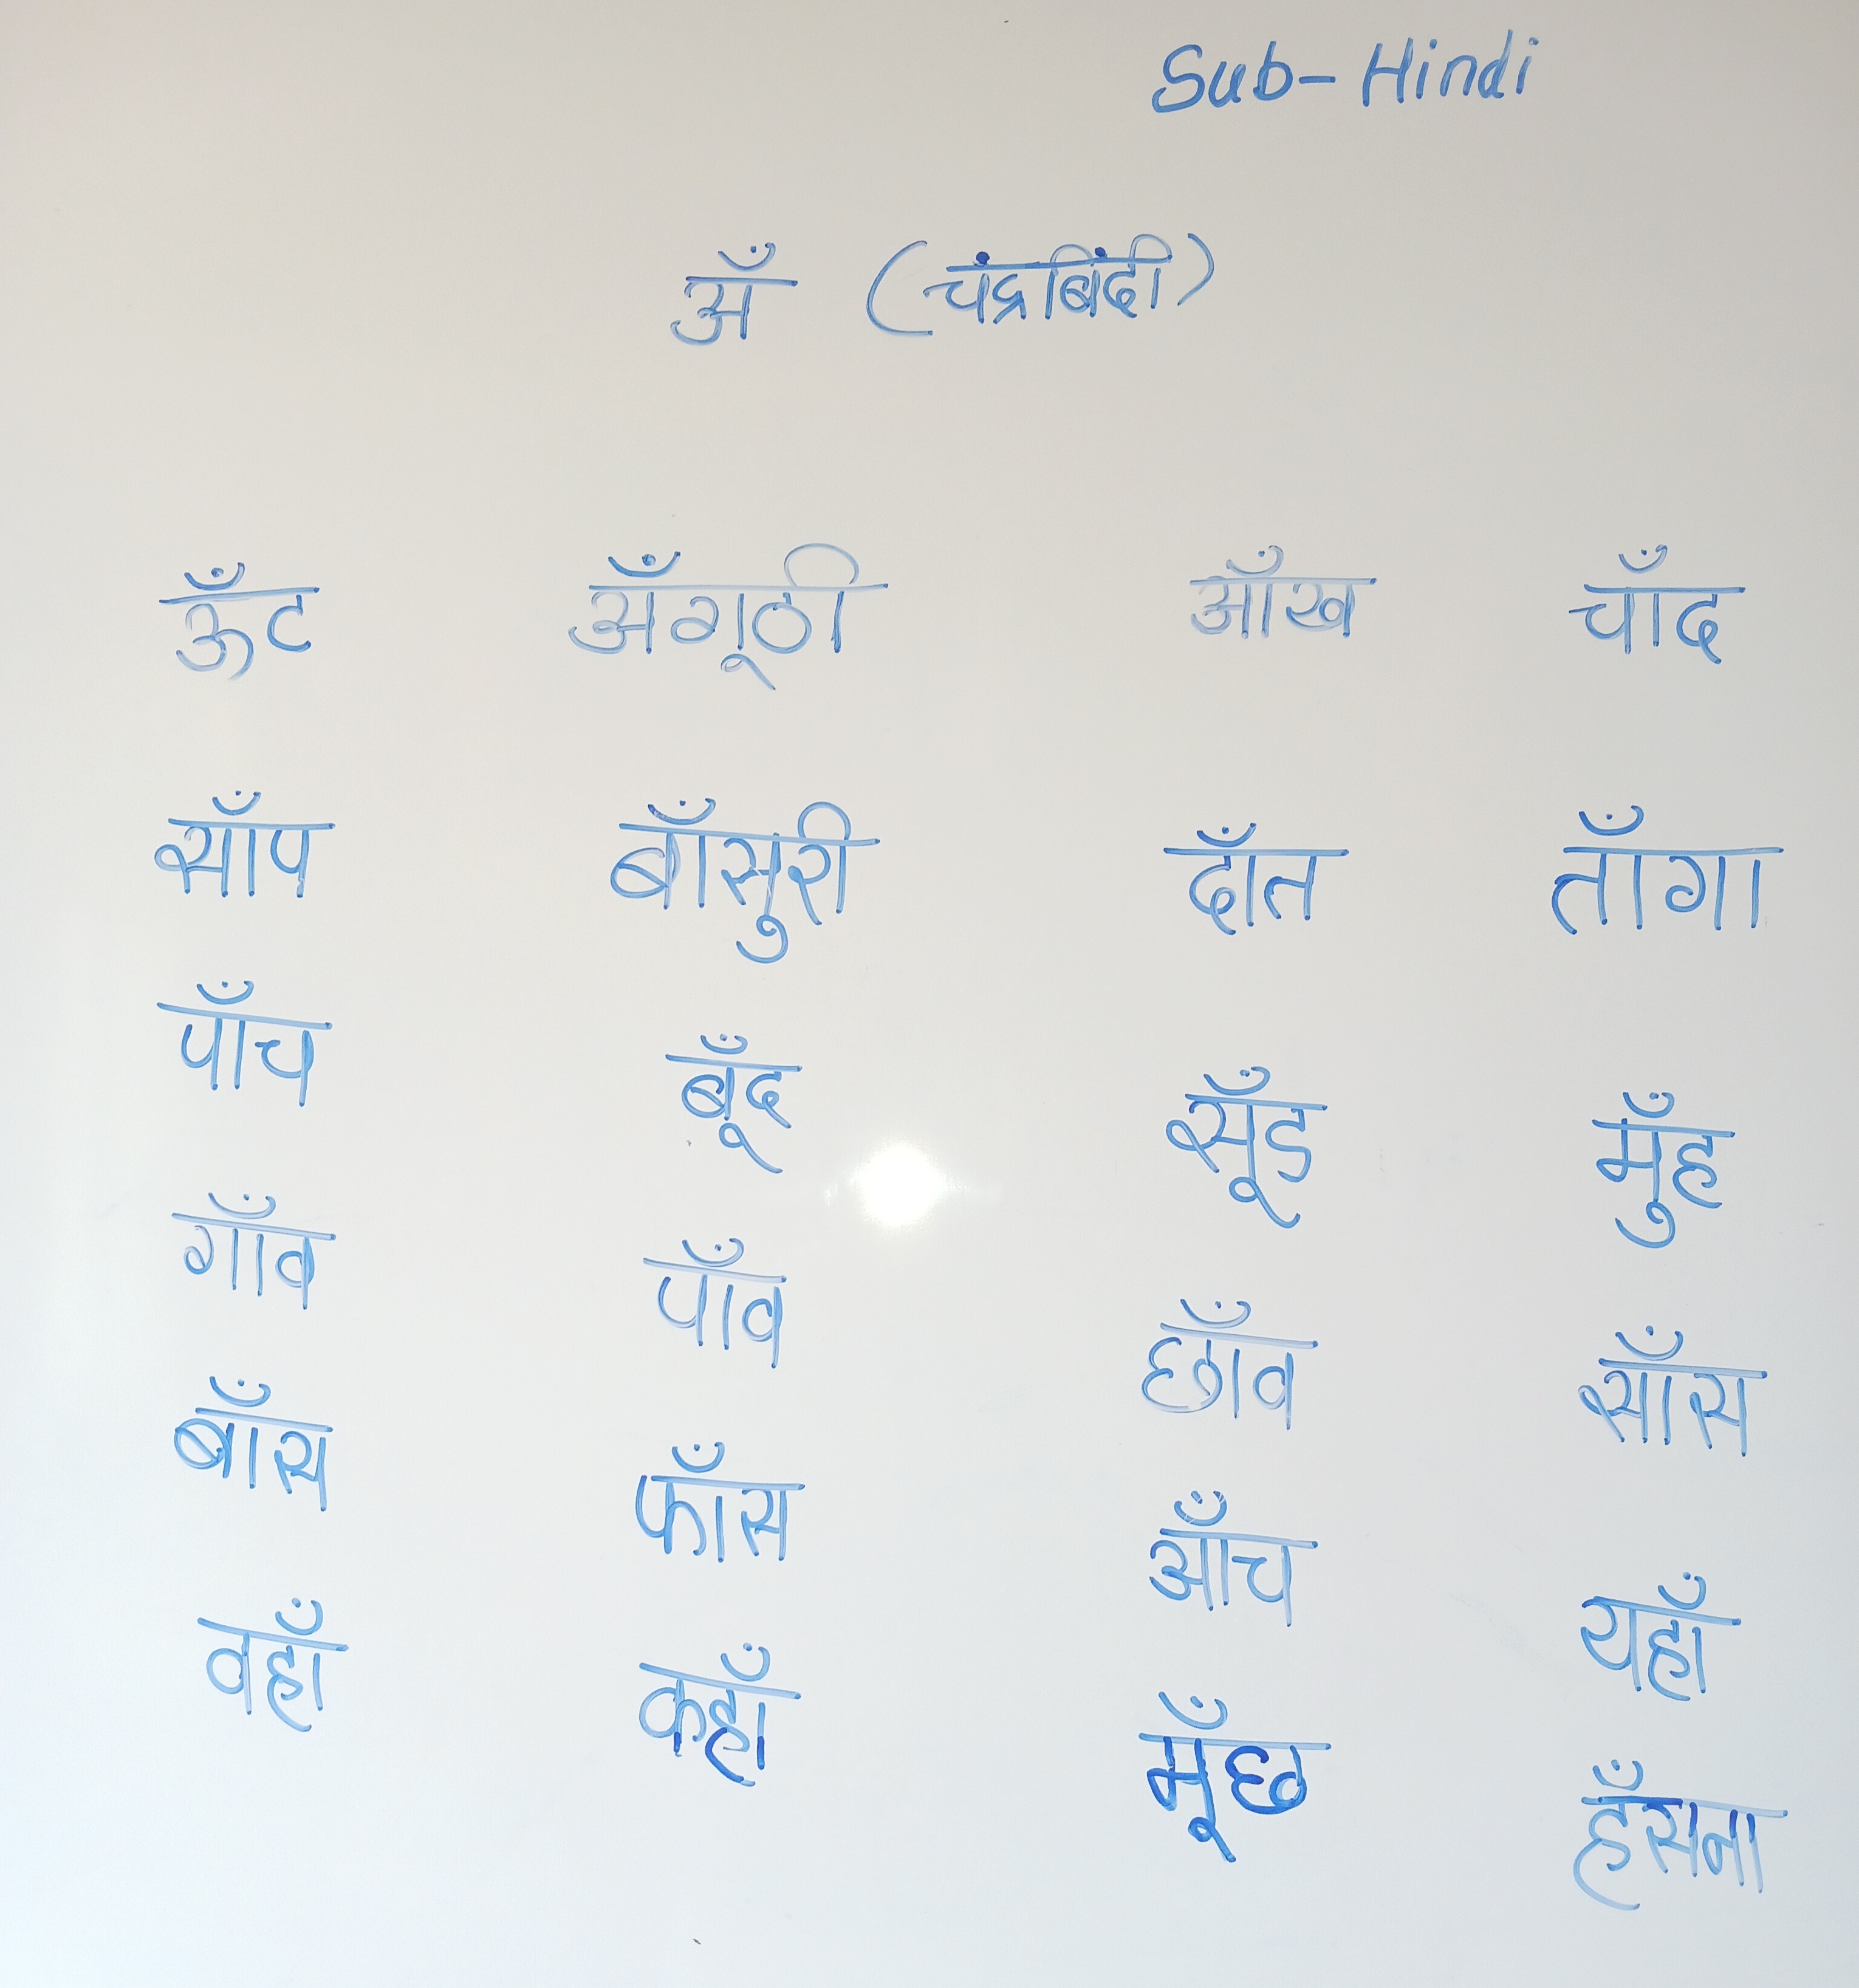 Sub-Hindi
अँ (चंद्रबिंदी)
ऊँट अँगूठी आँख चाँद
साँप बाँसुरी दाँत ताँगा
पाँच बूँद सूँड मुँह
गाँव पाँव छाँव साँस
बाँस फाँस आँच यहाँ
वहाँ कहाँ मूँछ हँसना